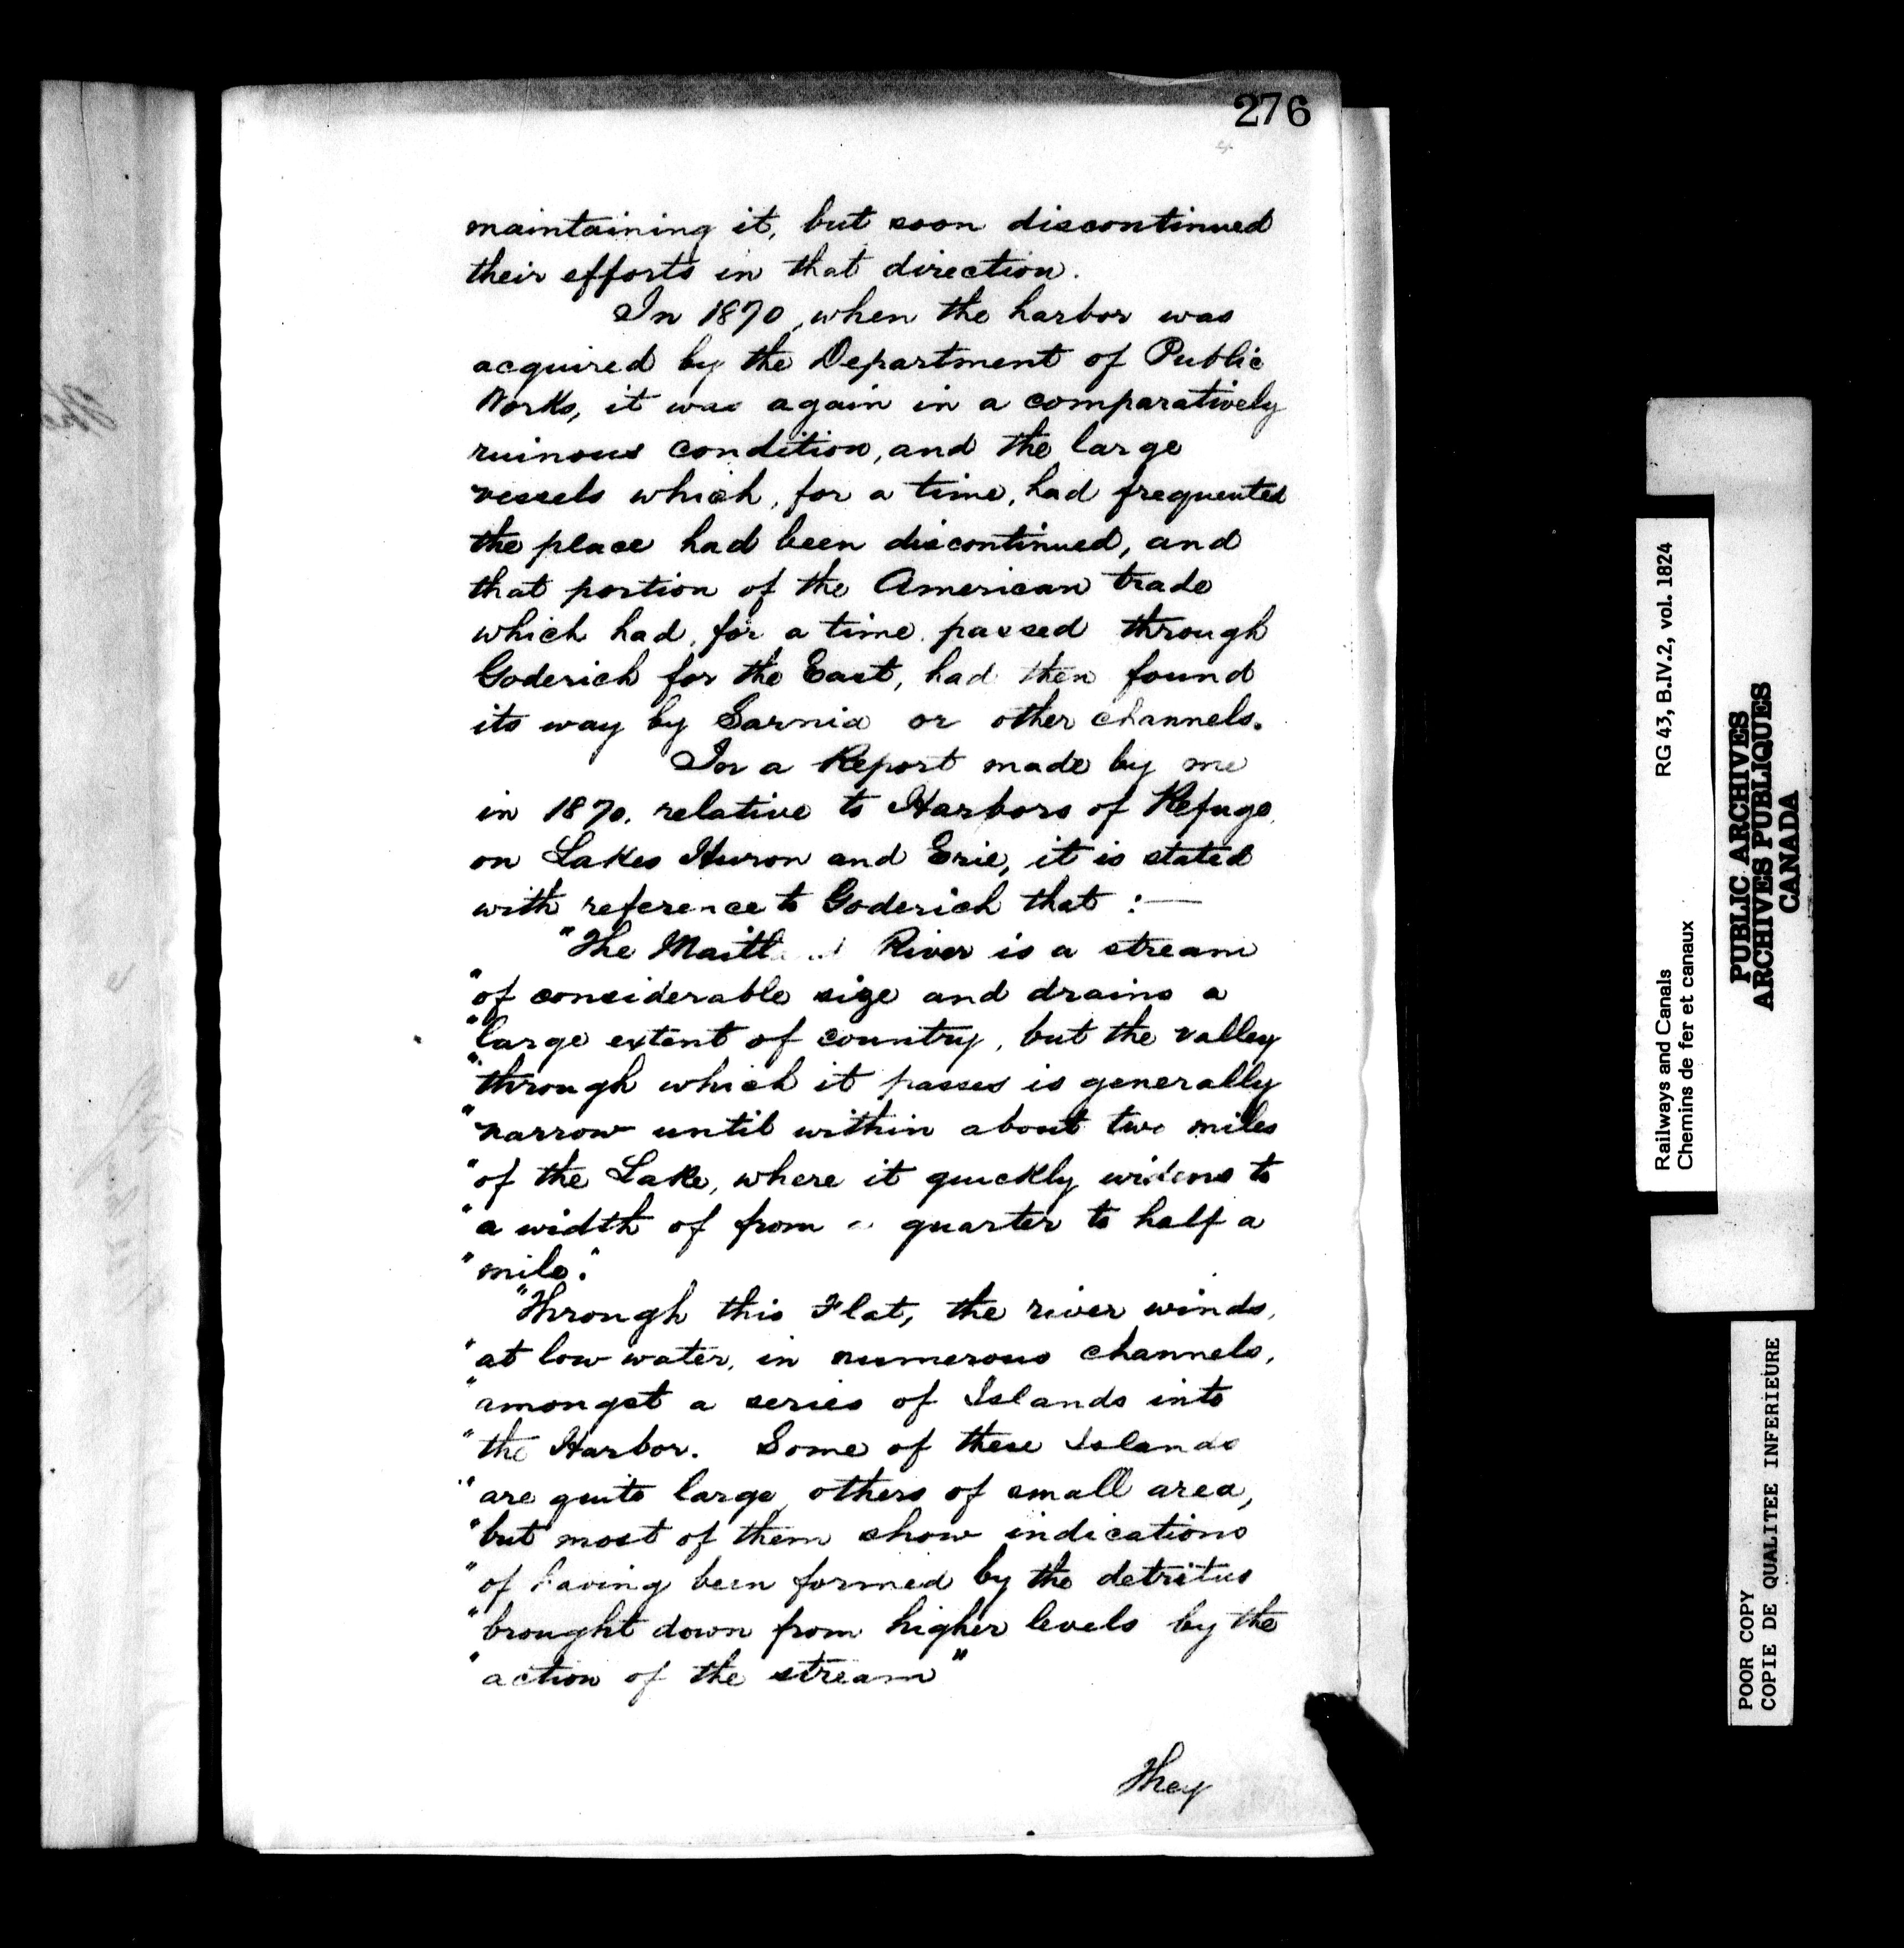 276
4
maintaining it, but soon discontinued
their efforts in that direction.
In 1870, when the harbor was
acquired by the Department of Public
Works, it was again in a comparatively
ruinous condition, and the large
vessels which, for a time, had frequented
the place had been discontinued, and
that portion of the American trade
which had, for a time, passed through
Goderich for the East, had then found
its way by Sarnia or other channels.
In a Report made by me
in 1870, relative to Harbors of Refuge,
on Lakes Huron and Erie, it is stated
with reference to Goderich that :—
"The Maitland River is a stream
"of considerable size and drains a
"large extent of country, but the valley
"through which it passes is generally
"narrow until within about two miles
"of the Lake, where it quickly widens to
"a width of from a quarter to half a
"mile."
"Through this Flat, the river winds,
"at low water, in numerous channels,
"amongst a series of Islands into
"the Harbor. Some of these Islands
"are quite large, others of small area,
"but most of them show indications
"of having been formed by the detritus
"brought down from higher levels by the
"action of the stream"
They
Railways and Canals RG 43, B.IV.2, vol. 1824
Chemins de fer et canaux
PUBLIC ARCHIVES
ARCHIVES PUBLIQUES
CANADA
POOR COPY
COPIE DE QUALITEE INFERIEURE